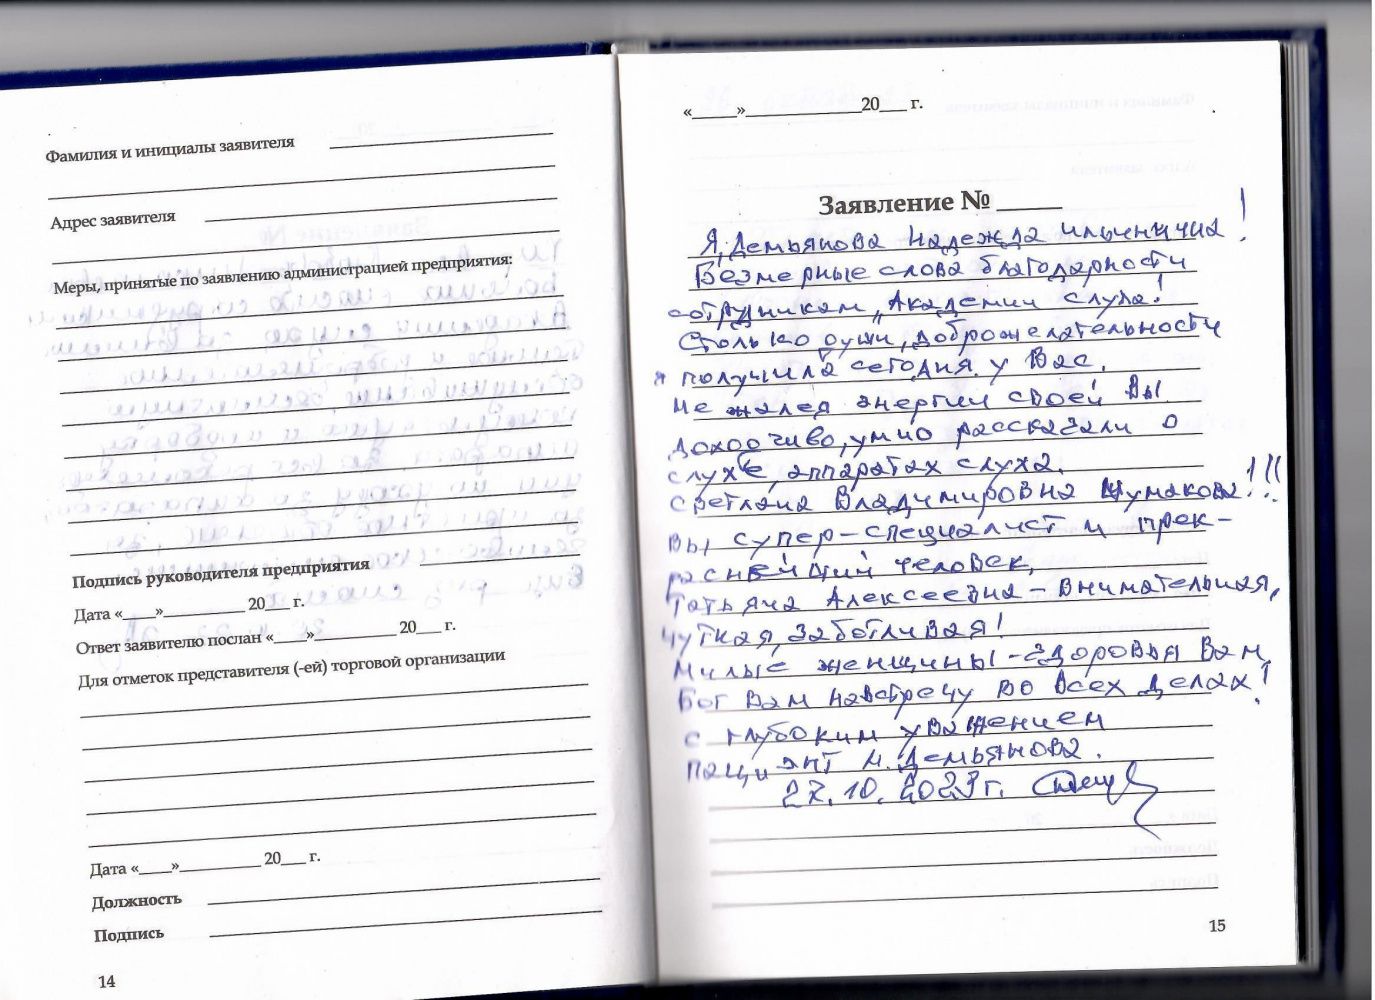 Фамилия и инициалы заявителя
Адрес заявителя
Меры, принятые по заявлению администрацией предприятия:
Подпись руководителя предприятия
Дата «____»__________ 20___ г.
Ответ заявителю послан «____»__________ 20___ г.
Для отметок представителя (-ей) торговой организации
Дата «____»__________ 20___ г.
Должность
Подпись
14
«_____»_____________20___ г.
Заявление № _____
Я, Демьянова Надежда Ильинична!
Безмерные слова благодарности
сотрудникам „Академии слуха!
Столько души, доброжелательности
я получила сегодня у Вас.
Не жалея энергии своей Вы
доходчиво, умно рассказали о
слухе, аппаратах слуха.
Светлана Владимировна Чумакова!!!
Вы супер-специалист и прек-
раснейший человек,
Татьяна Алексеевна - внимательная,
чуткая, заботливая!
Милые женщины - здоровья Вам,
Бог Вам навстречу во всех делах!
С глубоким уважением
Пациент Н. Демьянова.
27.10.2023г.
15